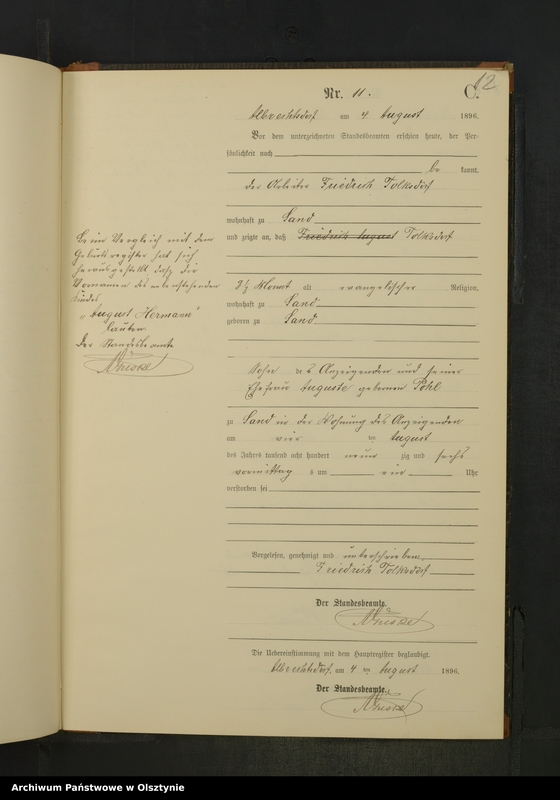 12
Nr. 11. C.
Albrechtsdorf am 4 August 1896.
Vor dem unterzeichneten Standesbeamten erschien heute, der Per-
sönlichkeit nach
be kannt,
der Arbeiter Friedrich Tolksdorf
wohnhaft zu Sand
und zeigte an, daß Friedrich August Tolksdorf
3½ Monat alt evangelischer Religion,
wohnhaft zu Sand
geboren zu Sand
Sohn des Anzeigenden und seiner
Ehefrau Auguste geborenen Pohl
zu Sand in der Wohnung des Anzeigenden
am vier ten August
des Jahres tausend acht hundert neun zig und sechs
vormittag s um ein Uhr
verstorben sei
Vorgelesen, genehmigt und unterschrieben
Friedrich Tolksdorf
Der Standesbeamte.
Die Uebereinstimmung mit dem Hauptregister beglaubigt.
Albrechtsdorf, am 4 ten August 1896.
Der Standesbeamte.
Beim Vergleich mit dem
Geburtsregister hat sich
herausgestellt daß die
Vornamen des nebenstehenden
Kindes
„August Hermann"
lauten.
Der Standesbeamte
Archiwum Państwowe w Olsztynie